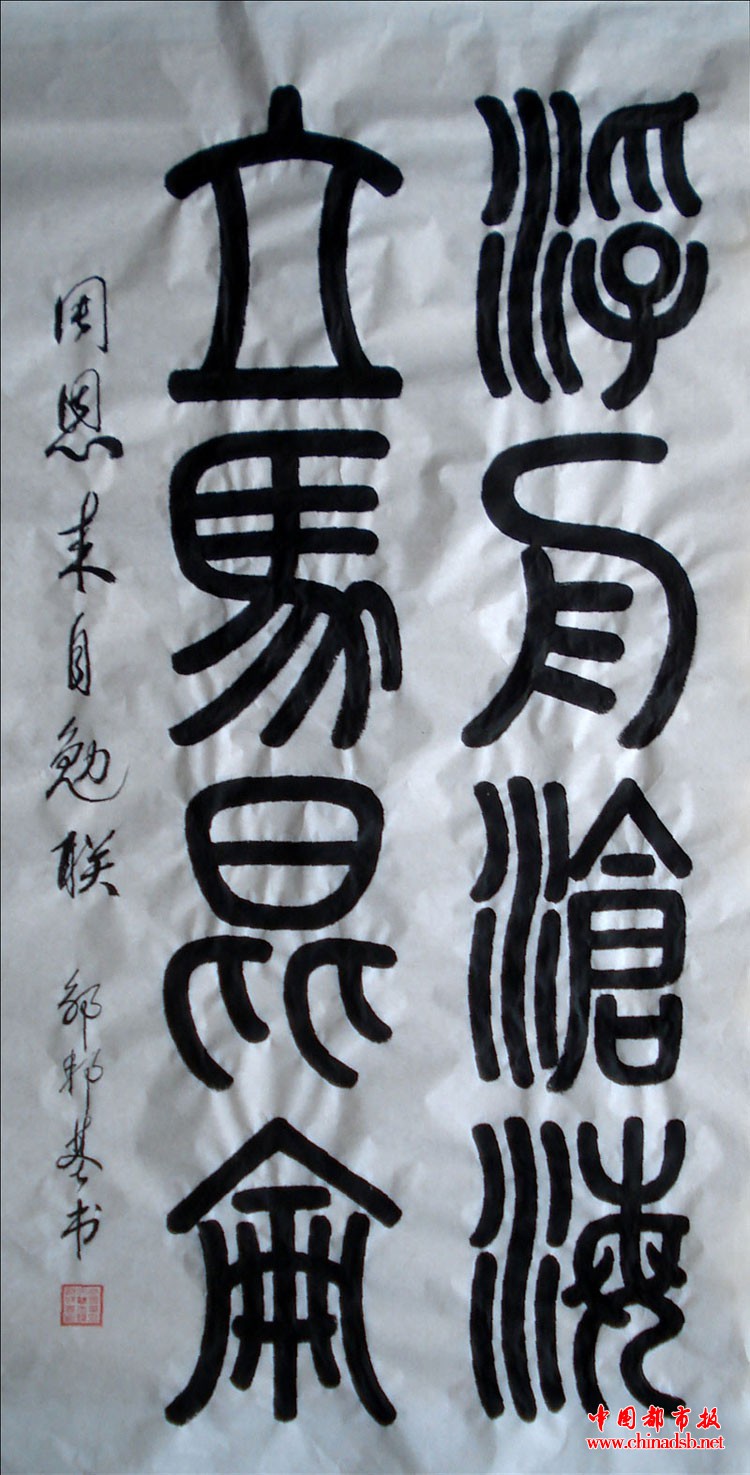 浮舟滄海
立馬昆侖
周恩来自勉联 邦基书
中国都市报
www.chinadsb.net